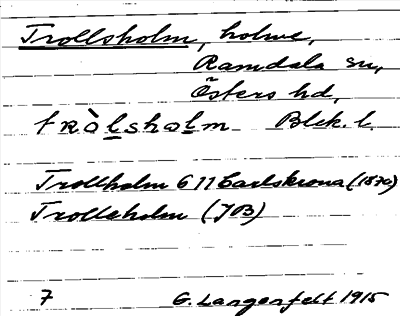 Trollsholm, holme,
Ramdala sn,
Östers hd,
tròlsholm Blek. l.
Trollholm 6 11 Carlskrona (1870)
Trollaholm (JB)
7 G. Langenfelt 1915